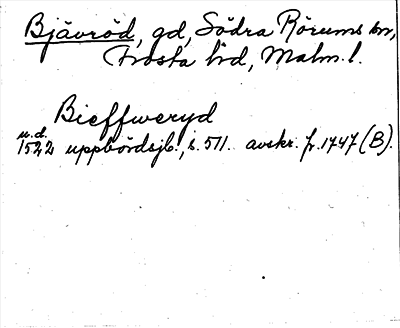 Bjävröd, gd, Södra Rörums sn,
Frosta hd, Malm. l.
Bieffweryd
u.d.
1522 uppbördsjb., s. 511. avskr. fr. 1747 (B).